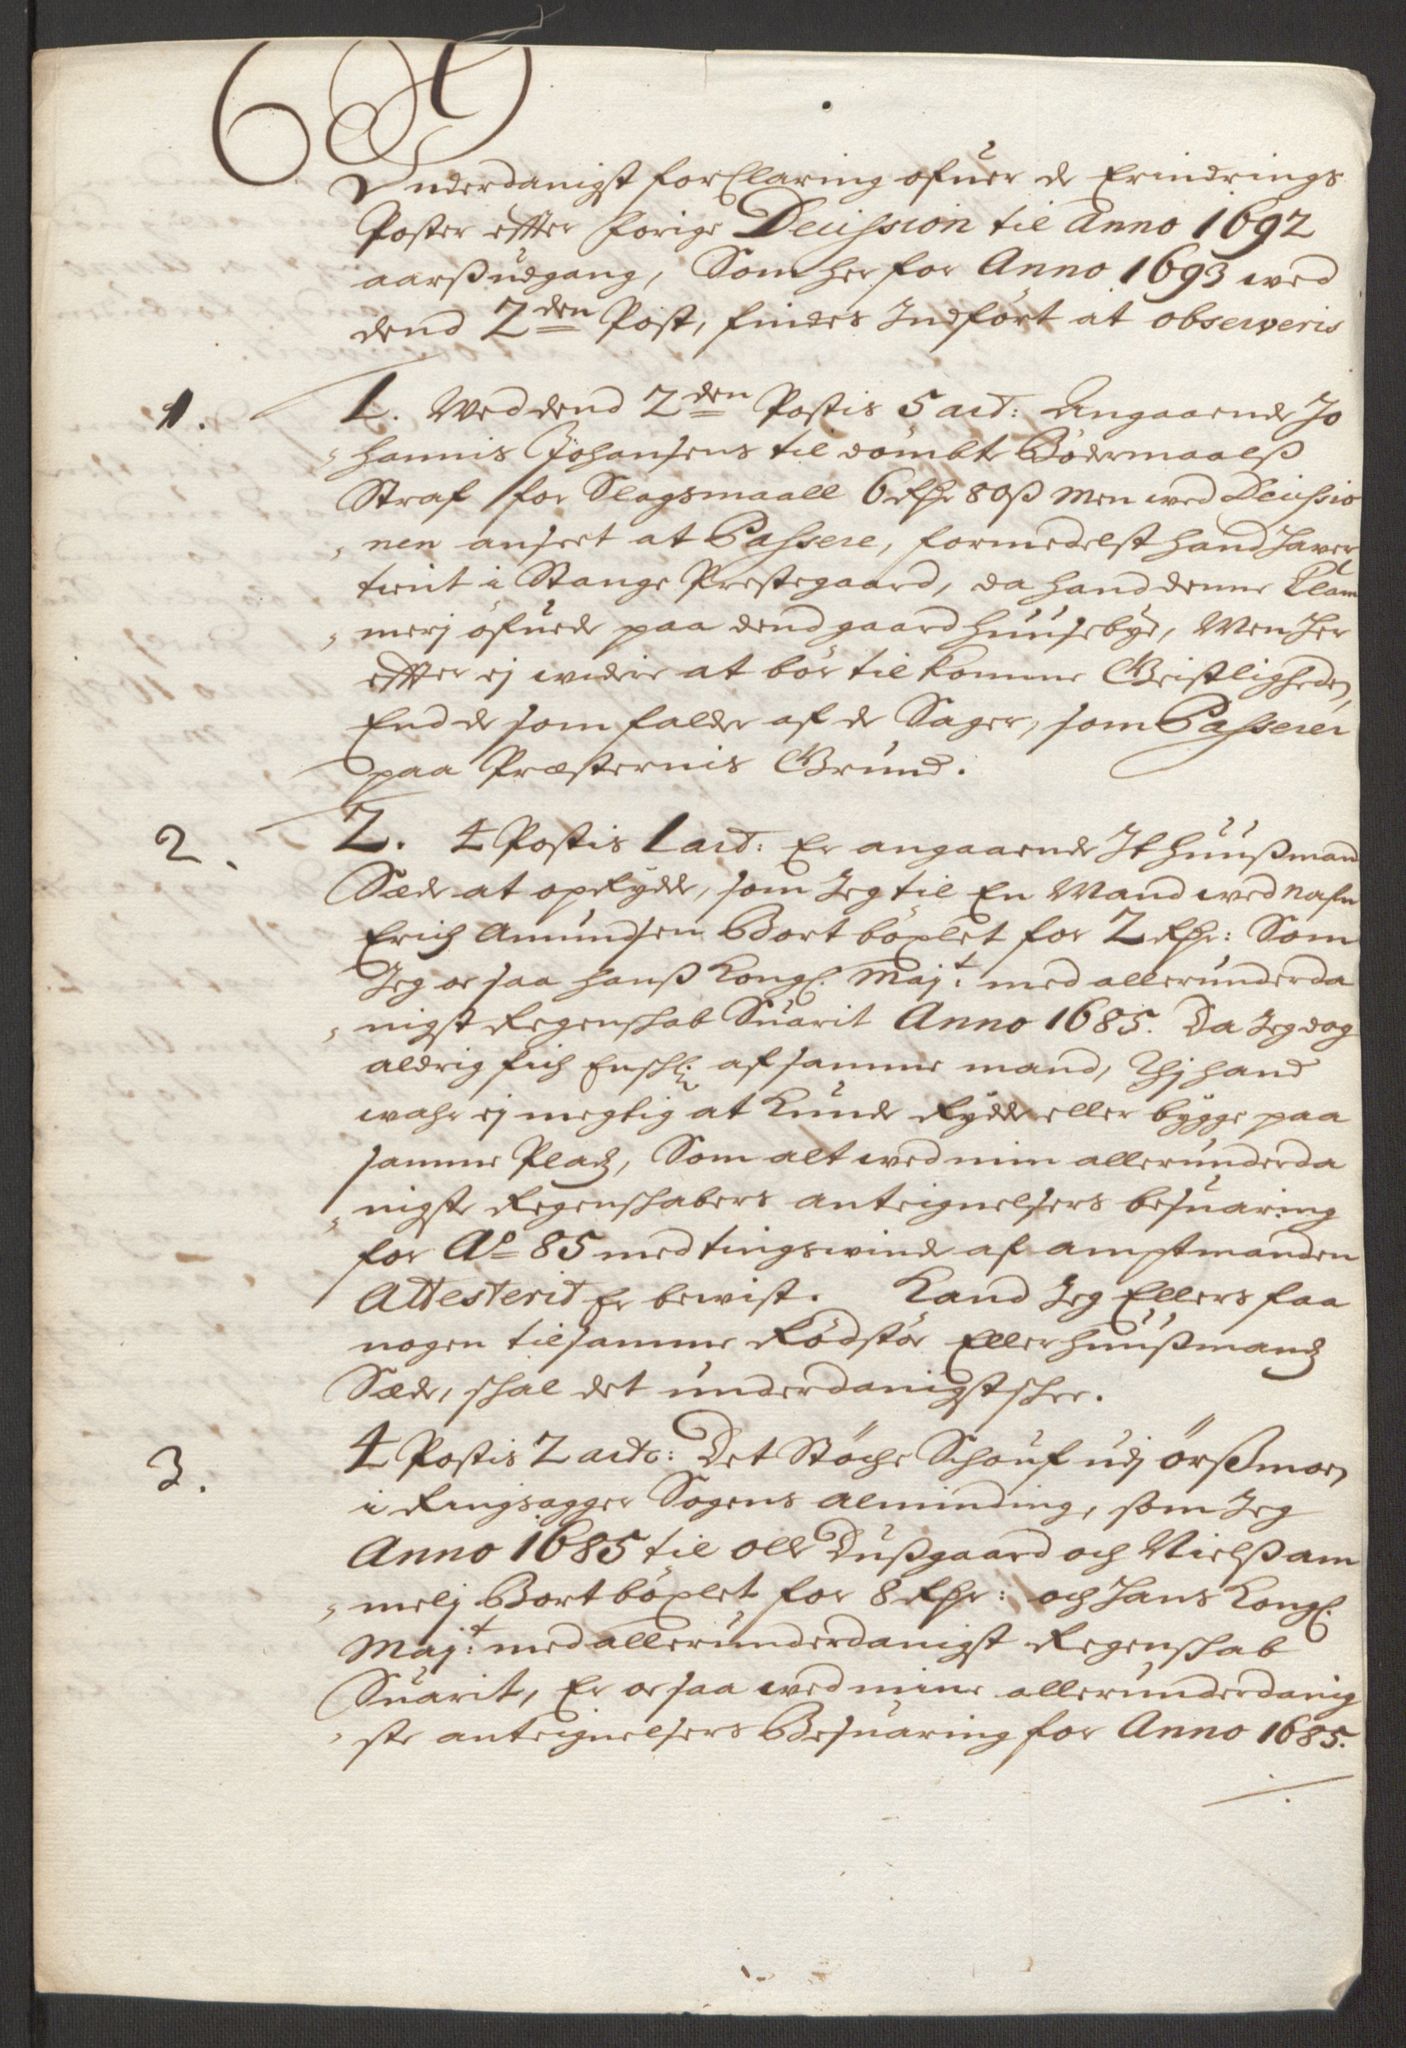 Underdanigst forClaring ofuer de Erindrings
Poster effter forige Decission til Anno 1692
aarß udgang, Som her for Anno 1693 wed
dend 2den Post, findes Indfört at observeris
1. 1. Wed dend 2den Postis 5 art: Angaaende Jo
hannis Johansens til dömbte Bödermaalß
Straf for Slagsmaall 6 Rdr 80ß Men wed Decissio
nen anseet at Passere, formedelst hand haver
tient i Stange Prestegaard, da hand denne Klam
merj öfuede paa dend gaard Huusebye, Men her
effter ej widere at bör tilkomme Geistligheden,
End de som falder af de Sager, som Passerer
paa Præsternis Grund.
2. 2. 4 Postis 1 art: Er angaaende It huußmand
Sæde at opRydde, som Jeg til En Mand wed Nafn
Erich Amundsen Bort böxlet for 2 Rdr: Som
Jeg ocsaa hanß Kongl. Majt: med allerunderda
nigst Regenschab Suarit Anno 1685. Da Jeg dog
aldrig fich Enschl: af samme mand, Thj hand
wahr ej megtig at kunde Rydde eller bygge paa
samme Pladz, Som alt wed min allerunderda
nigste Regenschabers anteignelsers besuaring
for Ao 85 med tingswinde af amptmanden
Attesterit Er bewist. Kand Jeg Ellers faa
nogen til samme Rödstör Eller huußmandz
Sæde, schal det underdanigst schee.
3. 4 Postis 2 artc: Det Stöche Schouf udj örßmoen
i Ringsagger Sogens Alminding, som Jeg
Anno 1685 til Olle Dußgaard och Nielß am
melj Bort böxlet for 8 Rdr: och hans Kongl.
Majt: med allerunderdanigst Regenschab
Suarit, Er ocsaa wed mine allerunderdanig
ste anteignelsers Besuaring for Anno 1685.